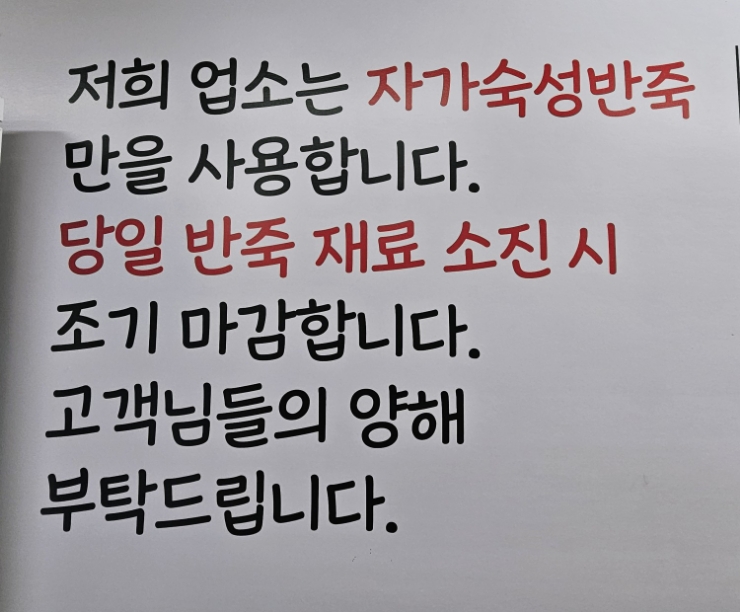 저희 업소는 자가숙성반죽
만을 사용합니다.
당일 반죽 재료 소진 시
조기 마감합니다.
고객님들의 양해
부탁드립니다.